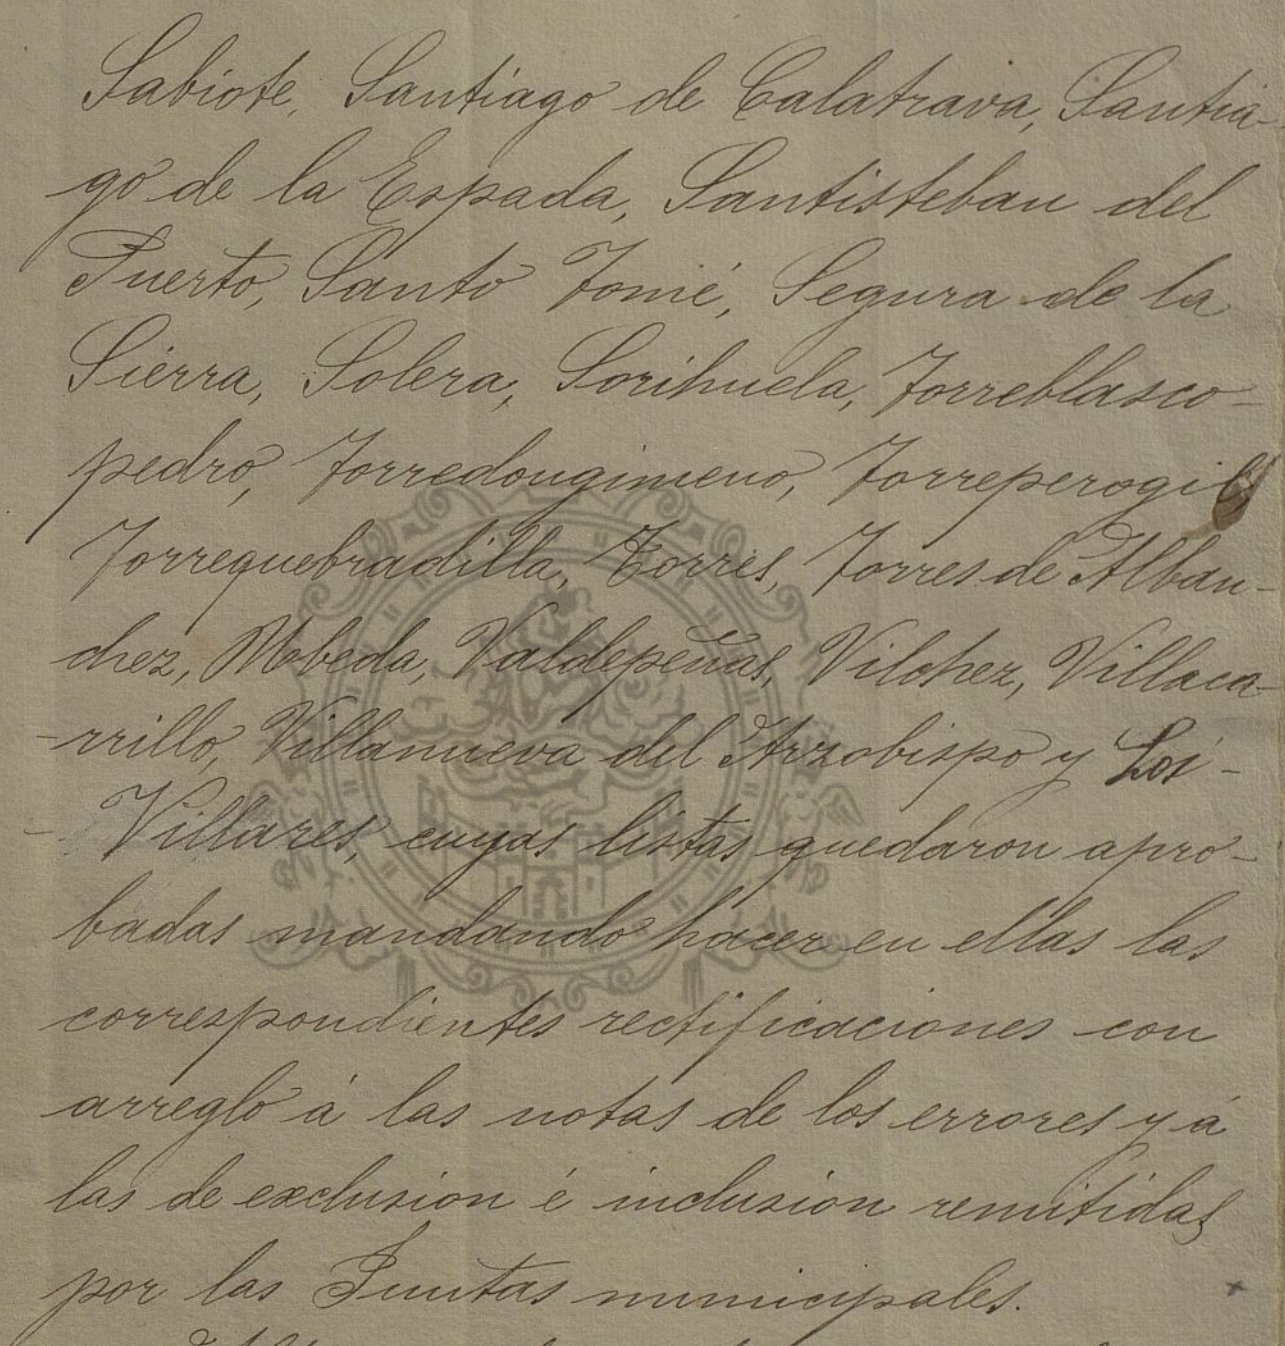 Sabiote, Santiago de Calatrava, Santia-
go de la Espada, Santisteban del
Puerto, Santo Tomé, Segura de la
Sierra, Solera, Sorihuela, Torreblasco-
pedro, Torredongimeno, Torreperogil,
Torrequebradilla, Torres, Torres de Alban-
chez, Ubeda, Valdepeñas, Vilchez, Villaca-
-rrillo, Villanueva del Arzobispo y Los-
- Villares, cuyas listas quedaron apro-
badas mandando hacer en ellas las
correspondientes rectificaciones con
arreglo á las notas de los errores y á
las de exclusion é inclusion remitidas
por las Juntas municipales.